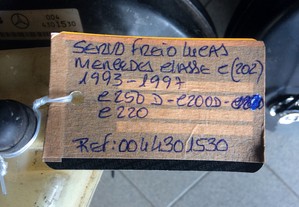 004
430 1530
SERVO FREIO LUCAS
MERCEDES CLASSE C(202)
1993-1997
C250 D - C200D -
C220
Ref: 0044301530